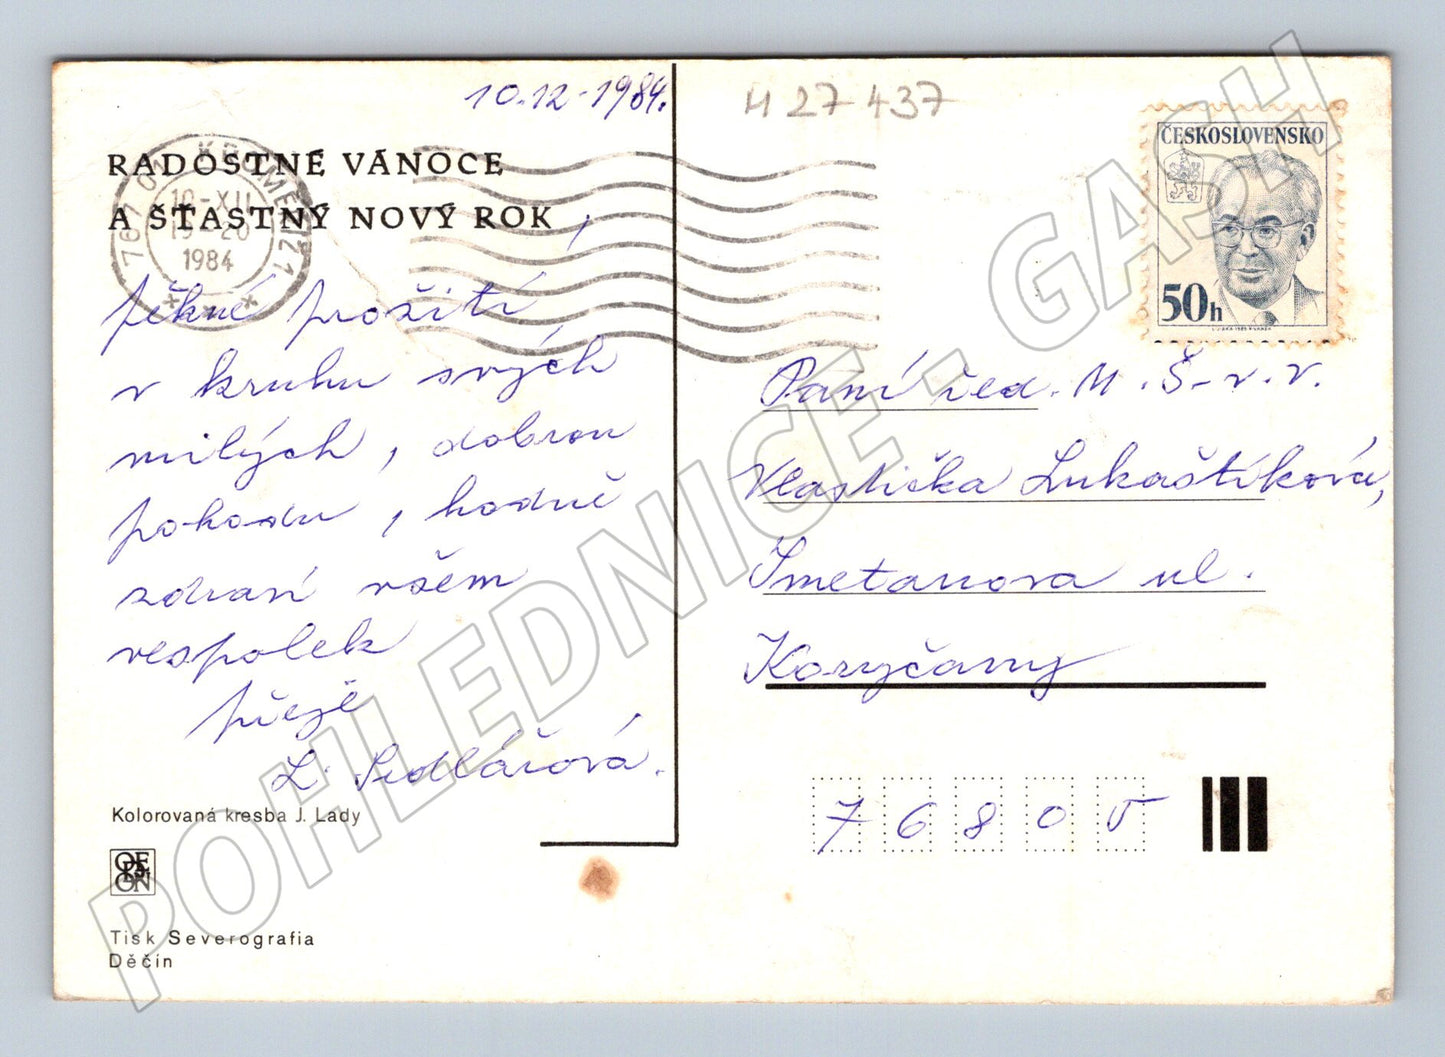 10.12.1984.
H 27 437
RADOSTNÉ VÁNOCE
A ŠŤASTNÝ NOVÝ ROK,
767 01 KROMĚŘÍŽ 1
10-XII
19-20
1984
pěkné prožití
v kruhu svých
milých, dobrou
pohodu, hodně
zdraví všem
vespolek
přeje
L. Sedlářová.
Kolorovaná kresba J. Lady
ODEON
Tisk Severografia
Děčín
ČESKOSLOVENSKO
50h
Paní řed. M.Š-v.v.
Vlastička Lukaštíková,
Smetanova ul.
Koryčany
76805
POHLEDNICE - GASH